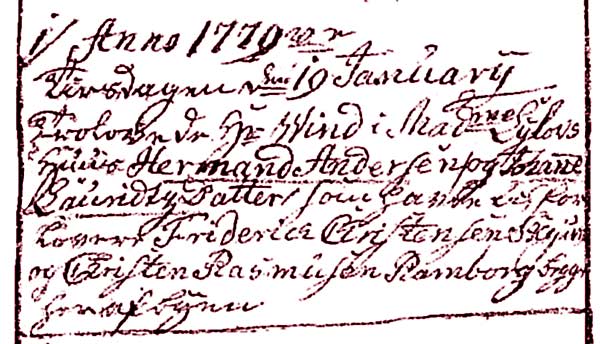 i/ Anno 1779
Tirsdagen d 19 January
Trolovede Hr Wind i Madme Lylovs
Huus Hermand Andersen og Johane
Lauridtz Datter som havde til for
lovere Friderick Christensen
og Christen Rasmusen Ramborg begge
her af Byen